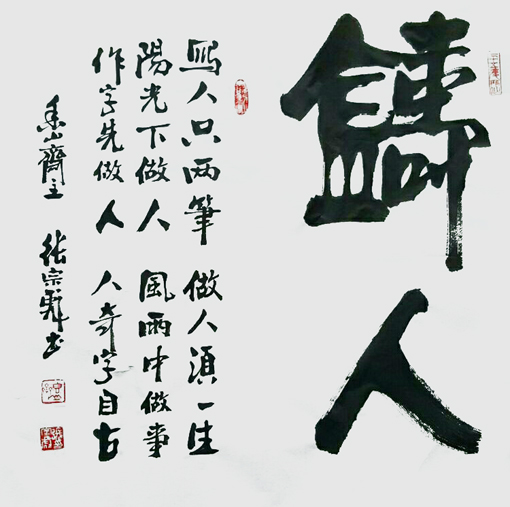 鑄人
寫人只两筆 做人須一生
陽光下做人 風雨中做事
作字先做人 人奇字自古
齋主 張宗 书